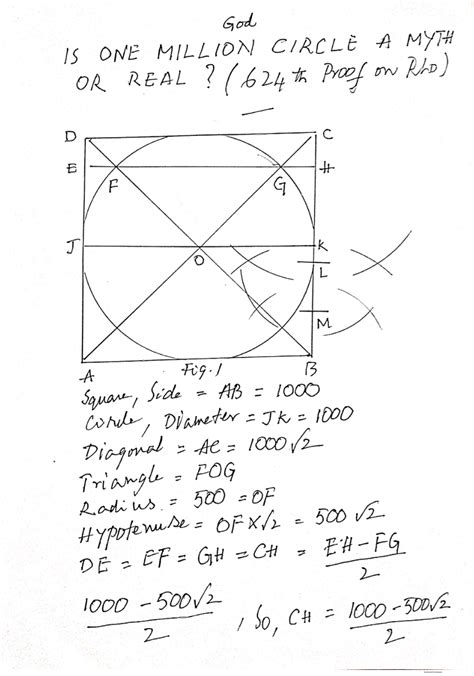 God
IS ONE MILLION CIRCLE A MYTH
OR REAL ? (624th Proof on RLD)
D C
E H
F G
J K
O
L
M
A Fig.1 B
Square, Side = AB = 1000
Circle, Diameter = JK = 1000
Diagonal = AC = 1000√2
Triangle = FOG
Radius = 500 = OF
Hypotenuse = OF X √2 = 500 √2
DE = EF = GH = CH = EH - FG / 2
1000 - 500√2 / 2 , So, CH = 1000 - 500√2 / 2